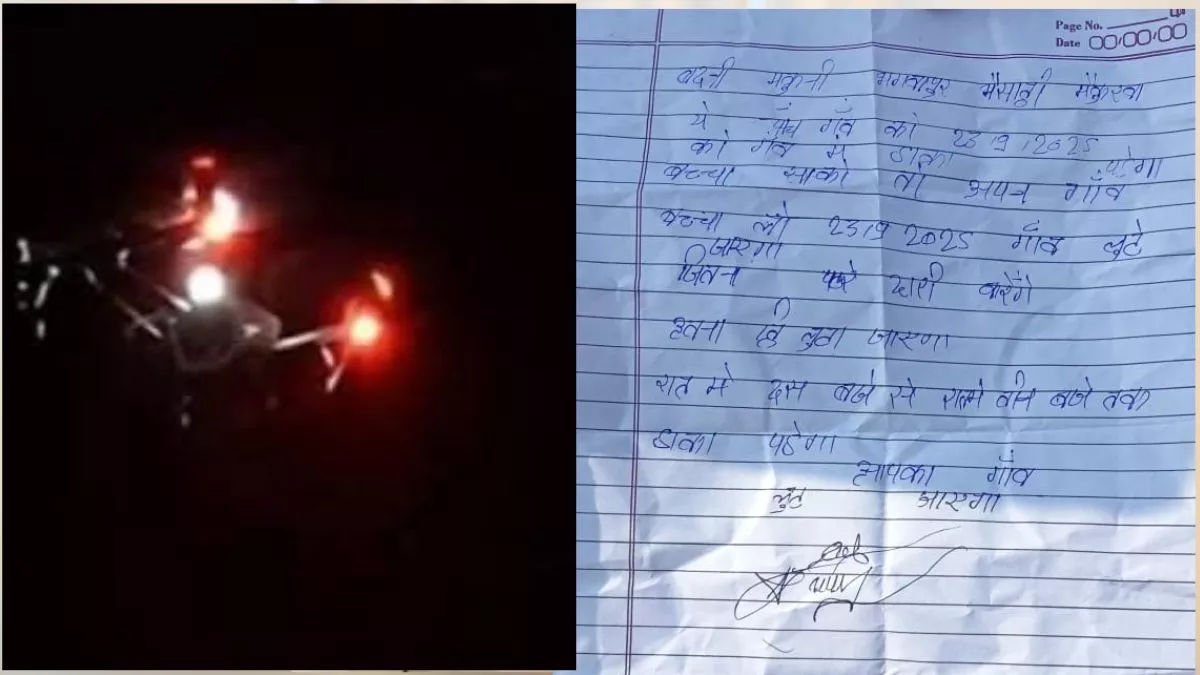 Page No.
Date
बदनी मकुनी भगवापुर भैसाही
ये पाँच गाँव को 23।9।2025
को गाँव मे डाका पड़ेगा
बच्चा साको तो अपन गाँव
बच्चा लो 23।9 2025 गाँव लुटे
जाएगा
जितना पहरे दारी करेंगे
इतना ही लुटा जाएगा
रात मे दस बजे से रातमे तीन बजे तक
डाका पडेगा
आपका गाँव
लुट जाएगा